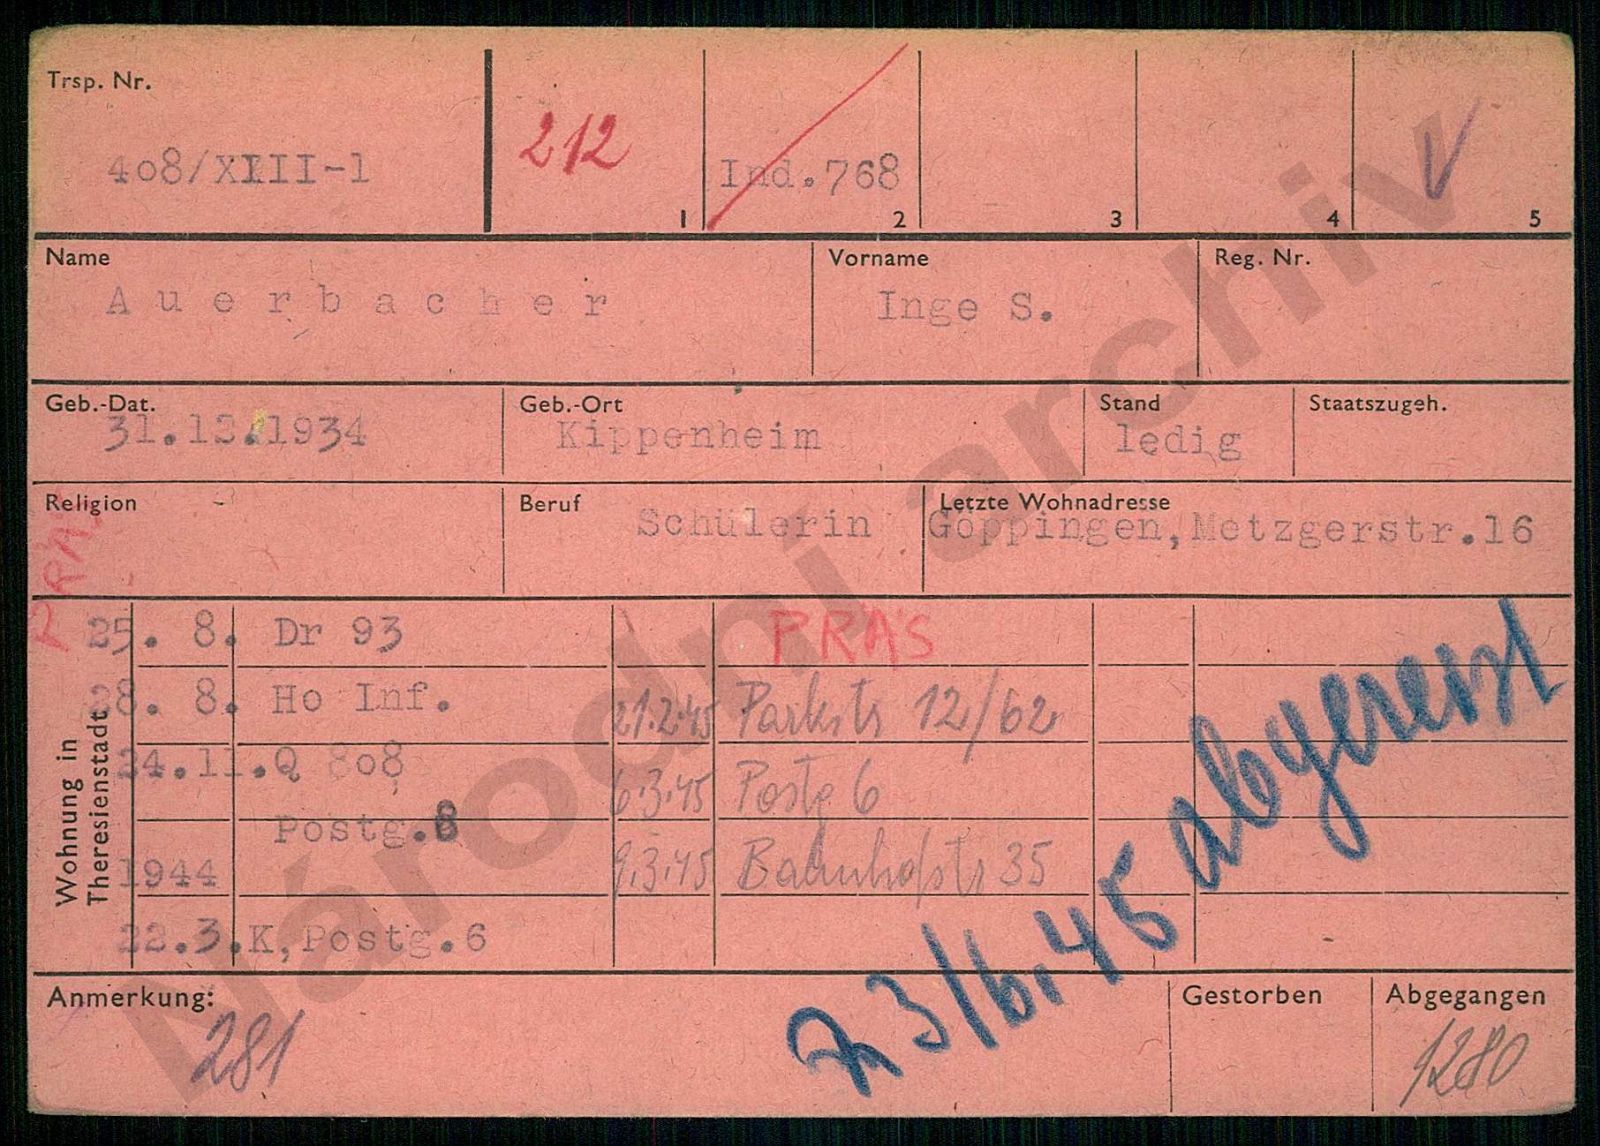 Trsp. Nr.
408/XIII-1
212
1
Ind.768
2
3
4
5
Name
Auerbacher
Vorname
Inge S.
Reg. Nr.
Geb.-Dat.
31.12.1934
Geb.-Ort
Kippenheim
Stand
ledig
Staatszugeh.
Religion
Beruf
Schülerin
Letzte Wohnadresse
Göppingen, Metzgerstr.16
PRÄ
Wohnung in
Theresienstadt
25. 8. Dr 93
28. 8. Ho Inf.
24.11. Q 808
Postg.8
1944
22.3. K, Postg.6
PRÄS
21.2.45 Parkstr 12/62
6.3.45 Postg 6
9.3.45 Bahnhofstr 35
3/6.45 abgereist
Anmerkung:
281
Gestorben
Abgegangen
1280
Národní archiv